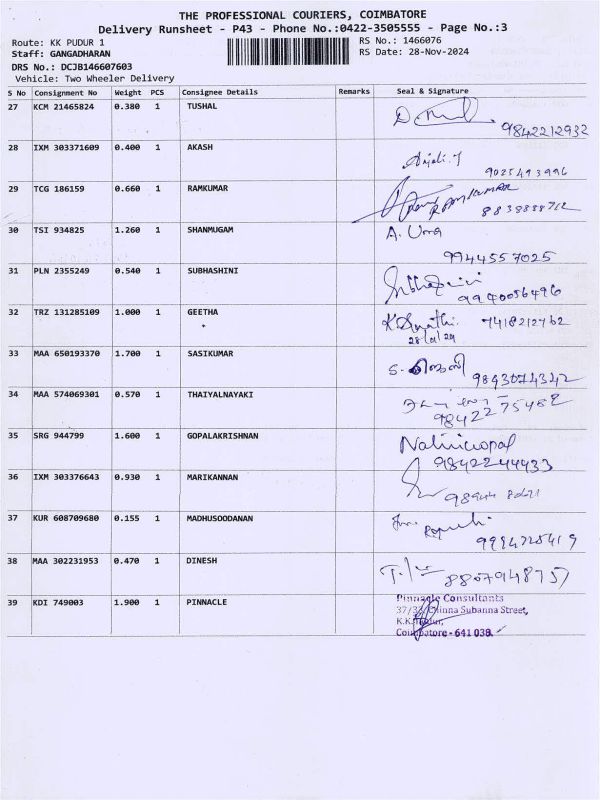 THE PROFESSIONAL COURIERS, COIMBATORE
Delivery Runsheet - P43 - Phone No.:0422-3505555 - Page No.:3
Route: KK PUDUR 1 RS No.: 1466076
Staff: GANGADHARAN RS Date: 28-Nov-2024
DRS No.: DCJB146607603
Vehicle: Two Wheeler Delivery
S No Consignment No Weight PCS Consignee Details Remarks Seal & Signature
27 KCM 21465824 0.380 1 TUSHAL
9842212932
28 IXM 303371609 0.400 1 AKASH
Anjali.J
9025493996
29 TCG 186159 0.660 1 RAMKUMAR
RAMKUMAR
30 TSI 934825 1.260 1 SHANMUGAM A. Uma
9944557025
31 PLN 2355249 0.540 1 SUBHASHINI
9940056496
32 TRZ 131285109 1.000 1 GEETHA
7418212762
33 MAA 650193370 1.700 1 SASIKUMAR
34 MAA 574069301 0.570 1 THAIYALNAYAKI
35 SRG 944799 1.600 1 GOPALAKRISHNAN
9842244433
36 IXM 303376643 0.930 1 MARIKANNAN
37 KUR 608709680 0.155 1 MADHUSOODANAN
38 MAA 302231953 0.470 1 DINESH
8807948757
39 KDI 749003 1.900 1 PINNACLE Pinnacle Consultants
Chinna Subanna Street,
Coimbatore - 641 038.